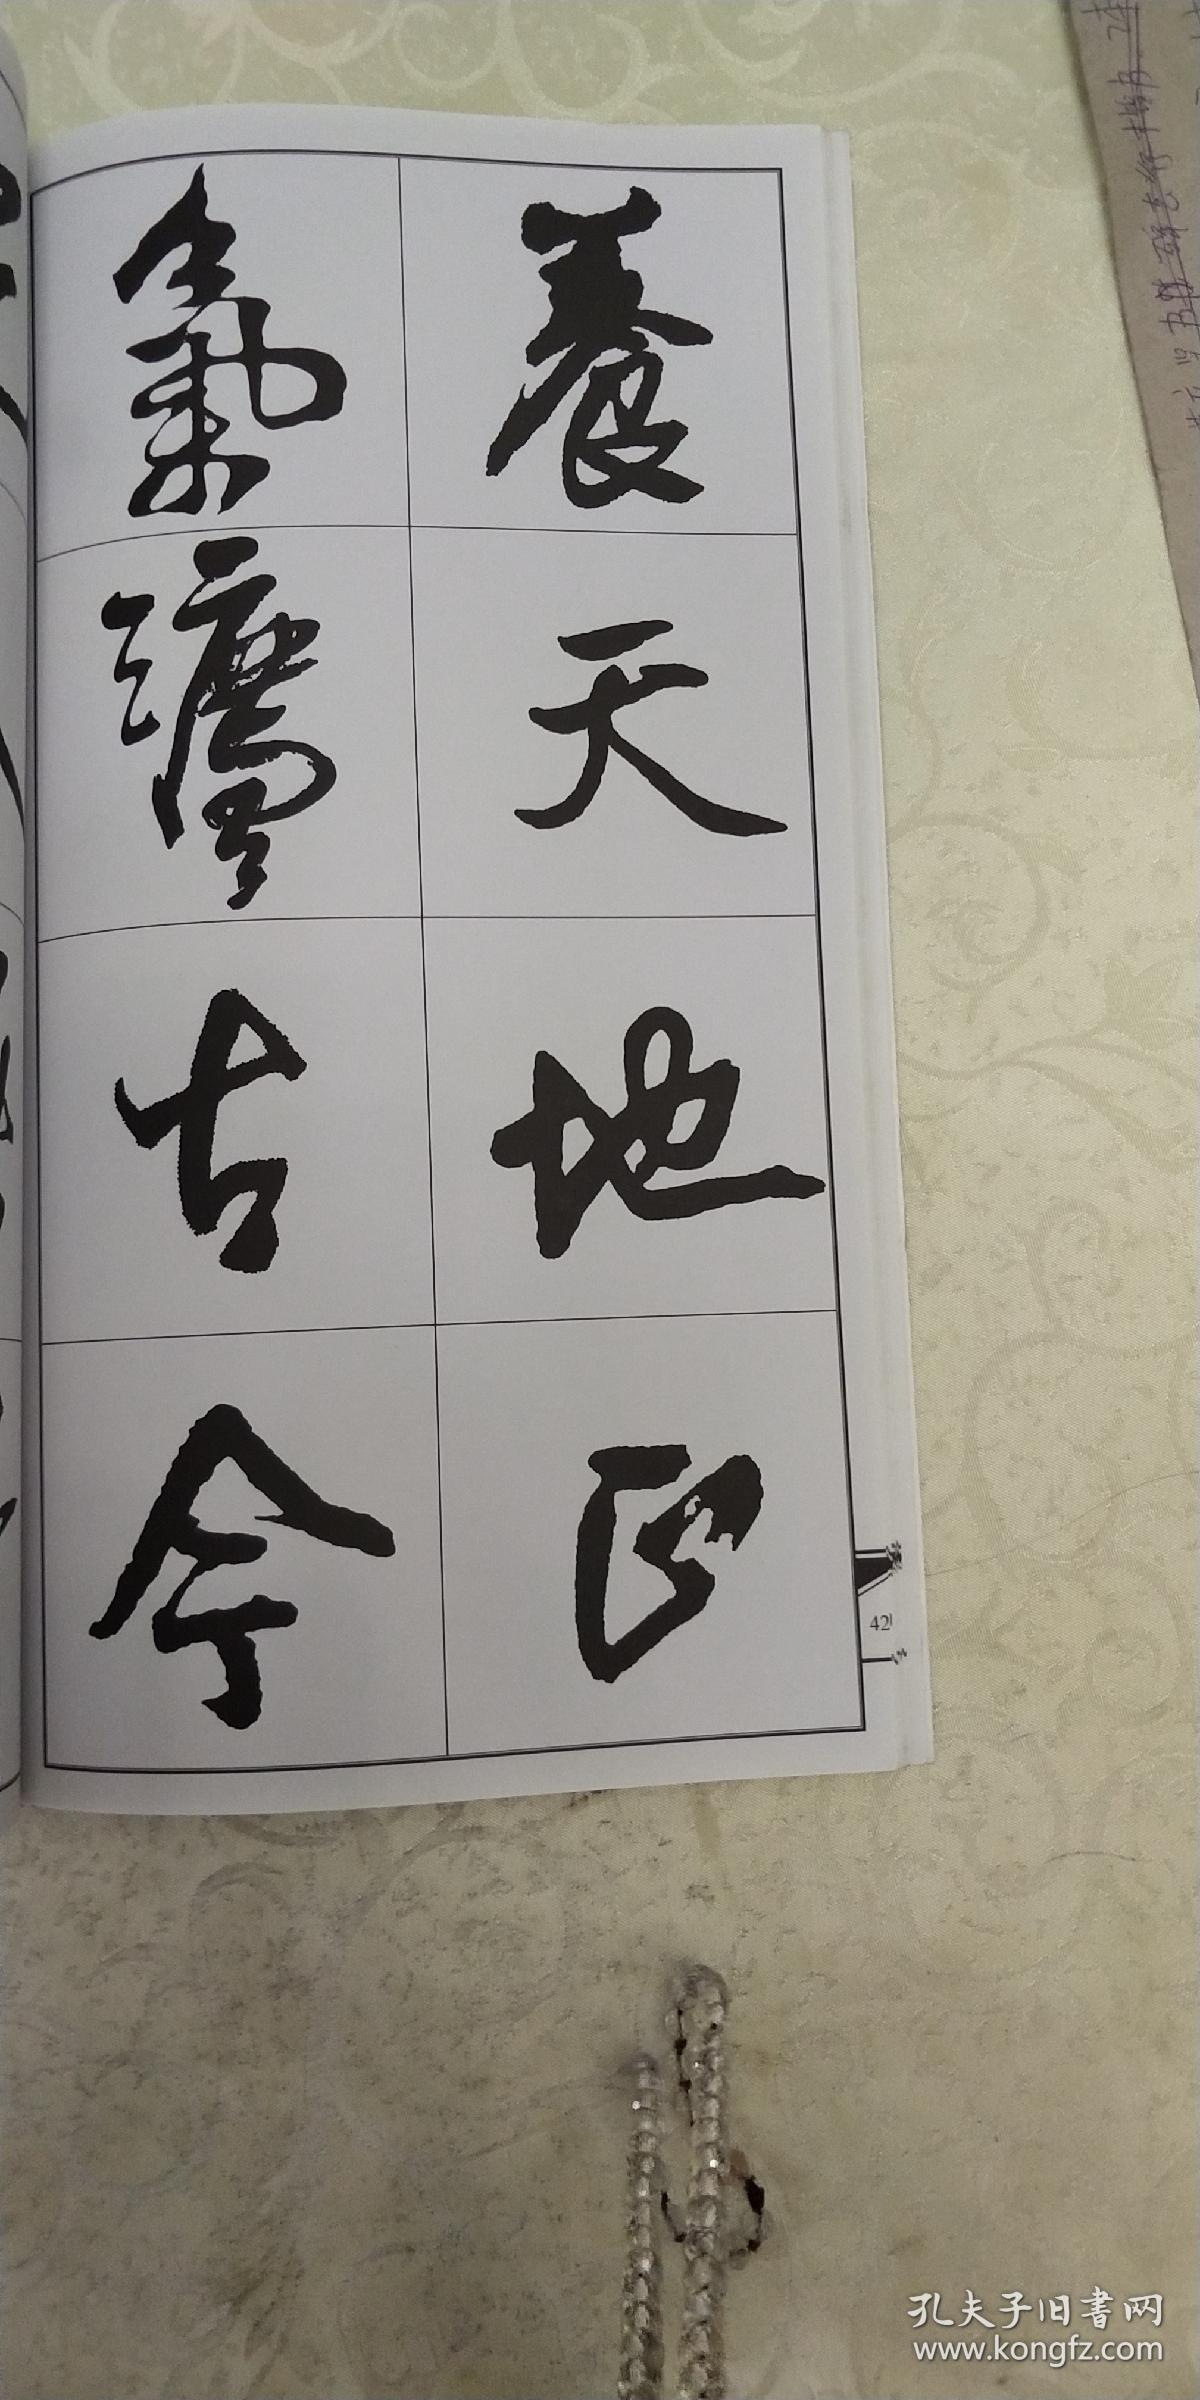 養天地正
氣灋古今
42
孔夫子旧书网
www.kongfz.com